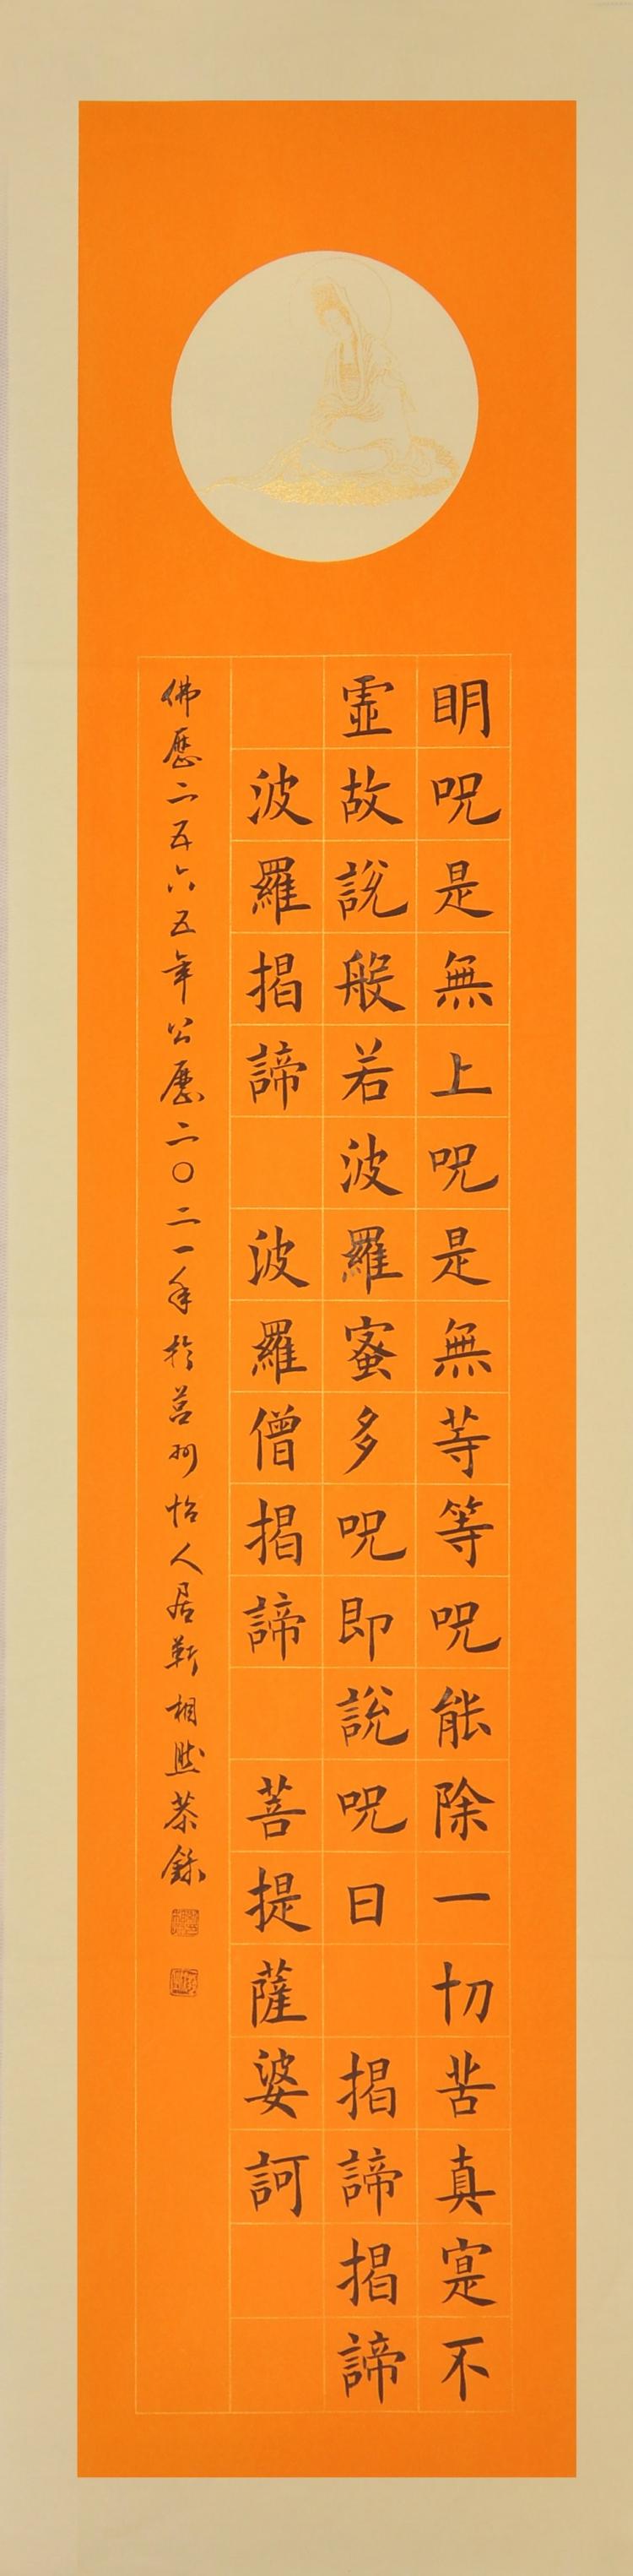 眀呪是無上呪是無等等呪能除一切苦真寔不
虛故說般若波羅蜜多呪即說呪曰 揭諦揭諦
波羅揭諦 波羅僧揭諦 菩提薩婆訶
佛歷二五六五年公歷二〇二一年於莒州怡人居靳相然恭錄